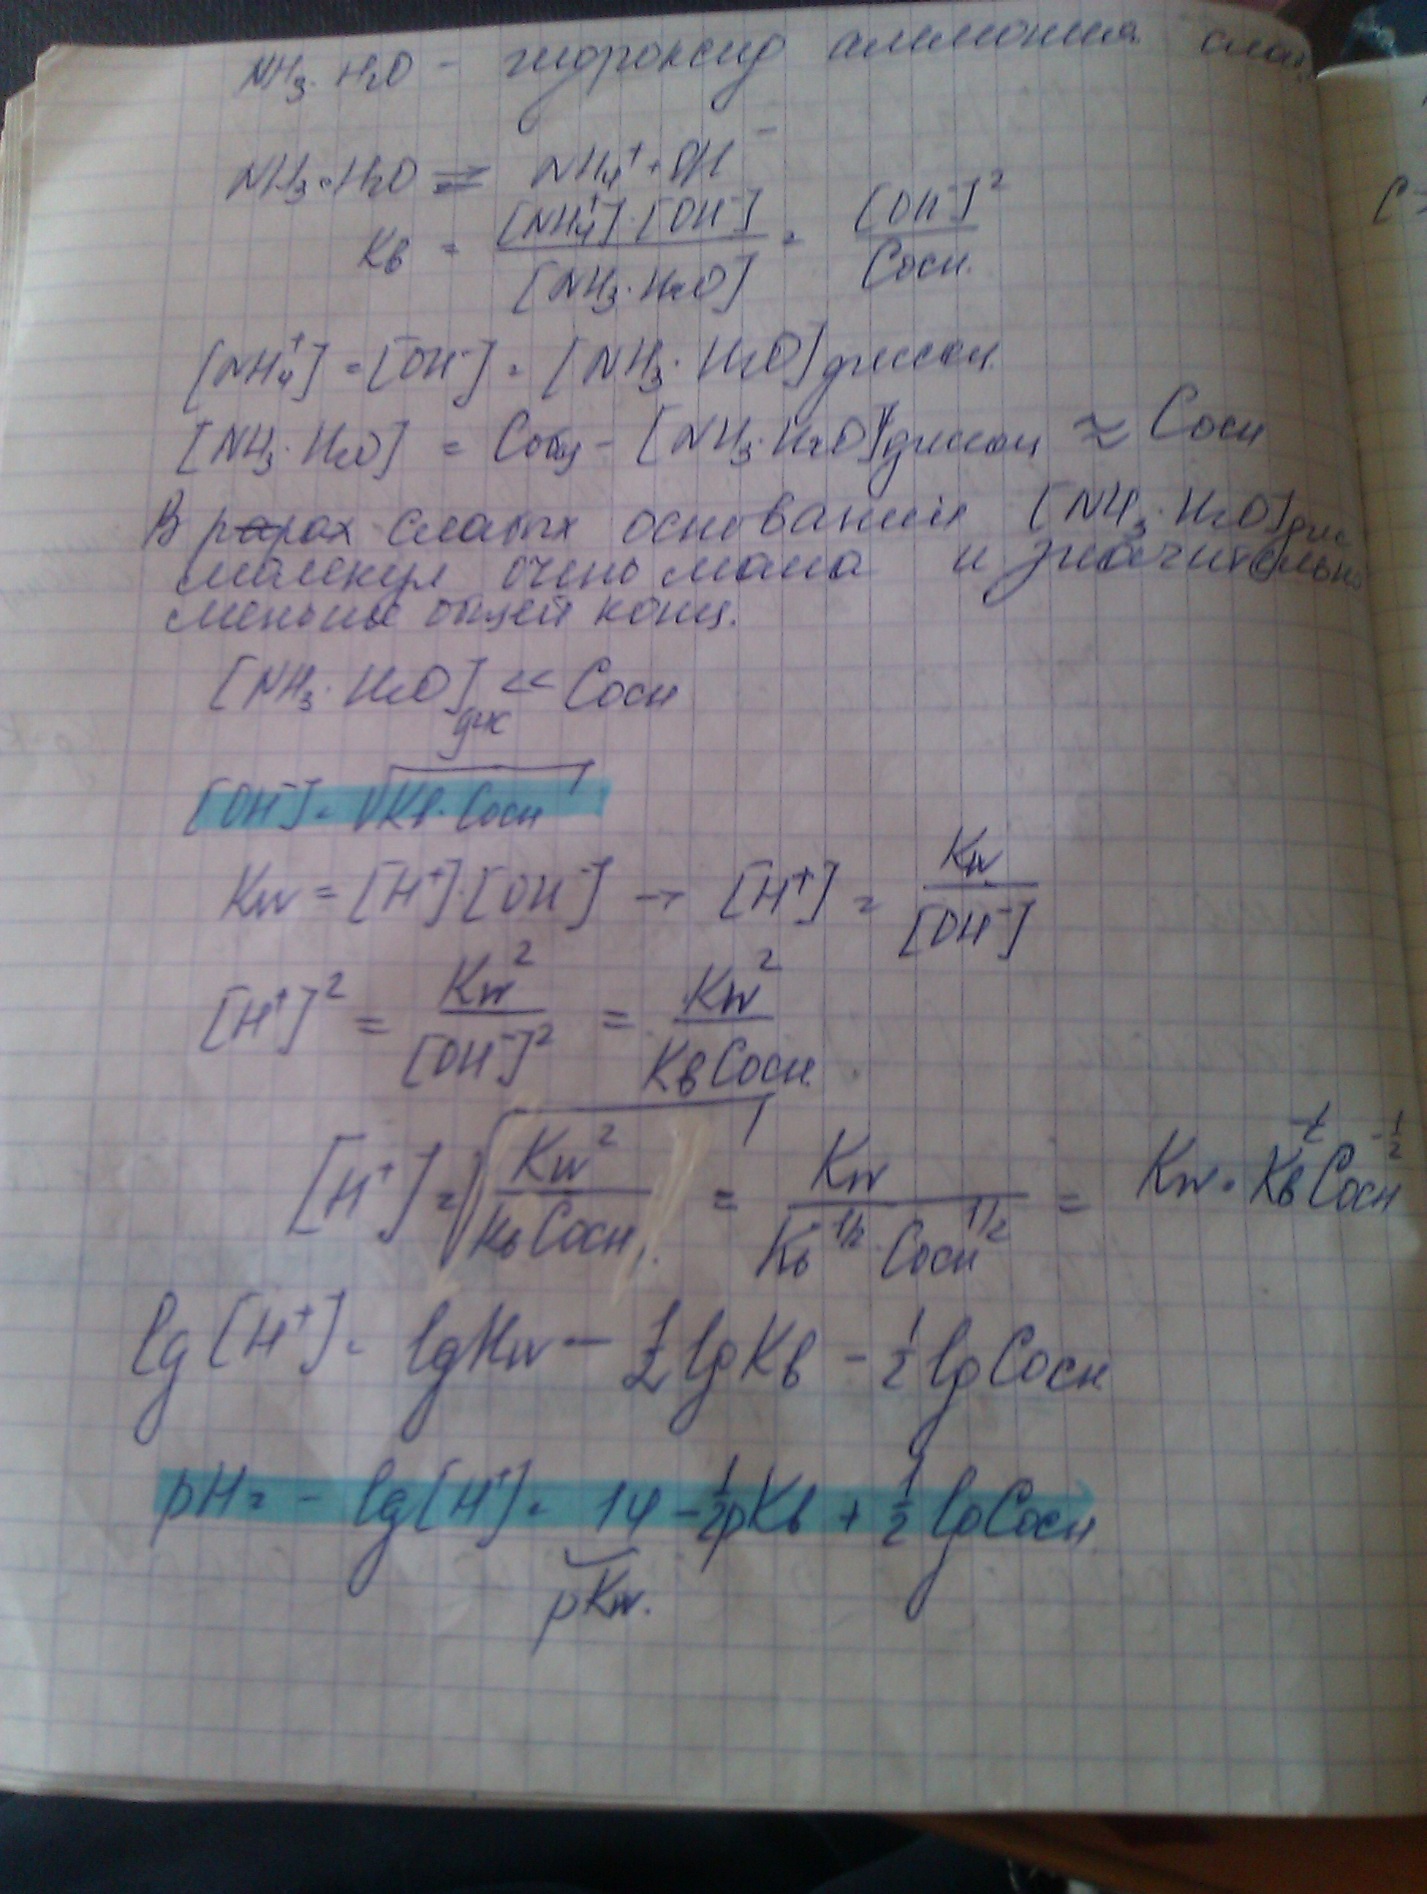 NH₃·H₂O – гидроксид аммония
NH₃·H₂O ⇌ NH₄⁺ + OH⁻
Kв = [NH₄⁺]·[OH⁻] / [NH₃·H₂O] = [OH⁻]² / Cосн.
[NH₄⁺] = [OH⁻] = [NH₃·H₂O] диссоц.
[NH₃·H₂O] = Cобщ – [NH₃·H₂O] диссоц ≈ Cосн
В рарах слабых оснований [NH₃·H₂O] дис
молекул очень мала и значительно
меньше общей конц.
[NH₃·H₂O] дис << Cосн
[OH⁻] = √Kв·Cосн
Kw = [H⁺]·[OH⁻] → [H⁺] = Kw / [OH⁻]
[H⁺]² = Kw² / [OH⁻]² = Kw² / KвCосн.
[H⁺] = √Kw² / KвCосн. = Kw / Kв^1/2·Cосн^1/2 = Kw·Kв^-1/2 Cосн^-1/2
lg[H⁺] = lgKw – 1/2 lgKв – 1/2 lgCосн
pH = – lg[H⁺] = 14 – 1/2 pKв + 1/2 lgCосн
pKw.